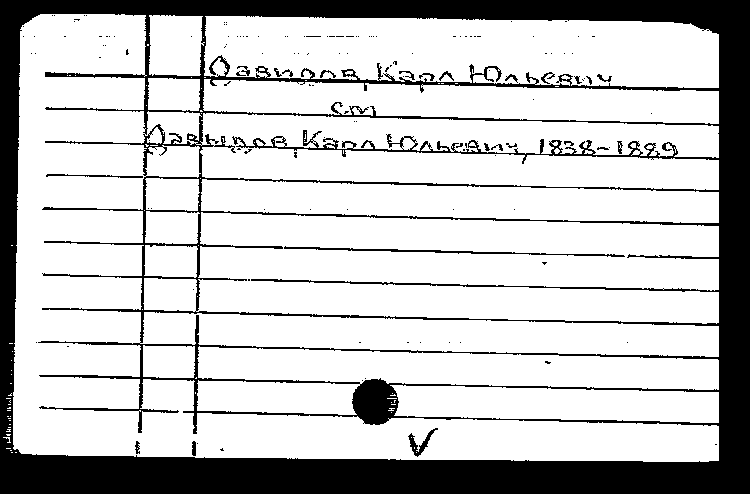 Давидов, Карл Юльевич
см
Давыдов, Карл Юльевич, 1838-1889
V